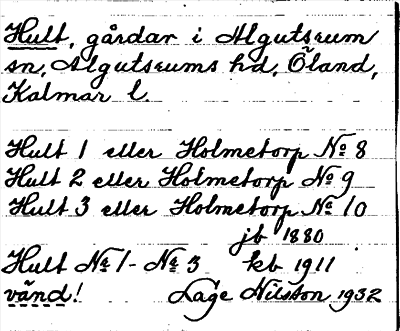 Hult, gårdar i Algutsrum
sn, Algutsrums hd, Öland,
Kalmar l.
Hult 1 eller Holmetorp No 8
Hult 2 eller Holmetorp No 9
Hult 3 eller Holmetorp No 10
jb 1880
Hult No 1 - No 3 kb 1911
vänd! Lage Nilsson 1932